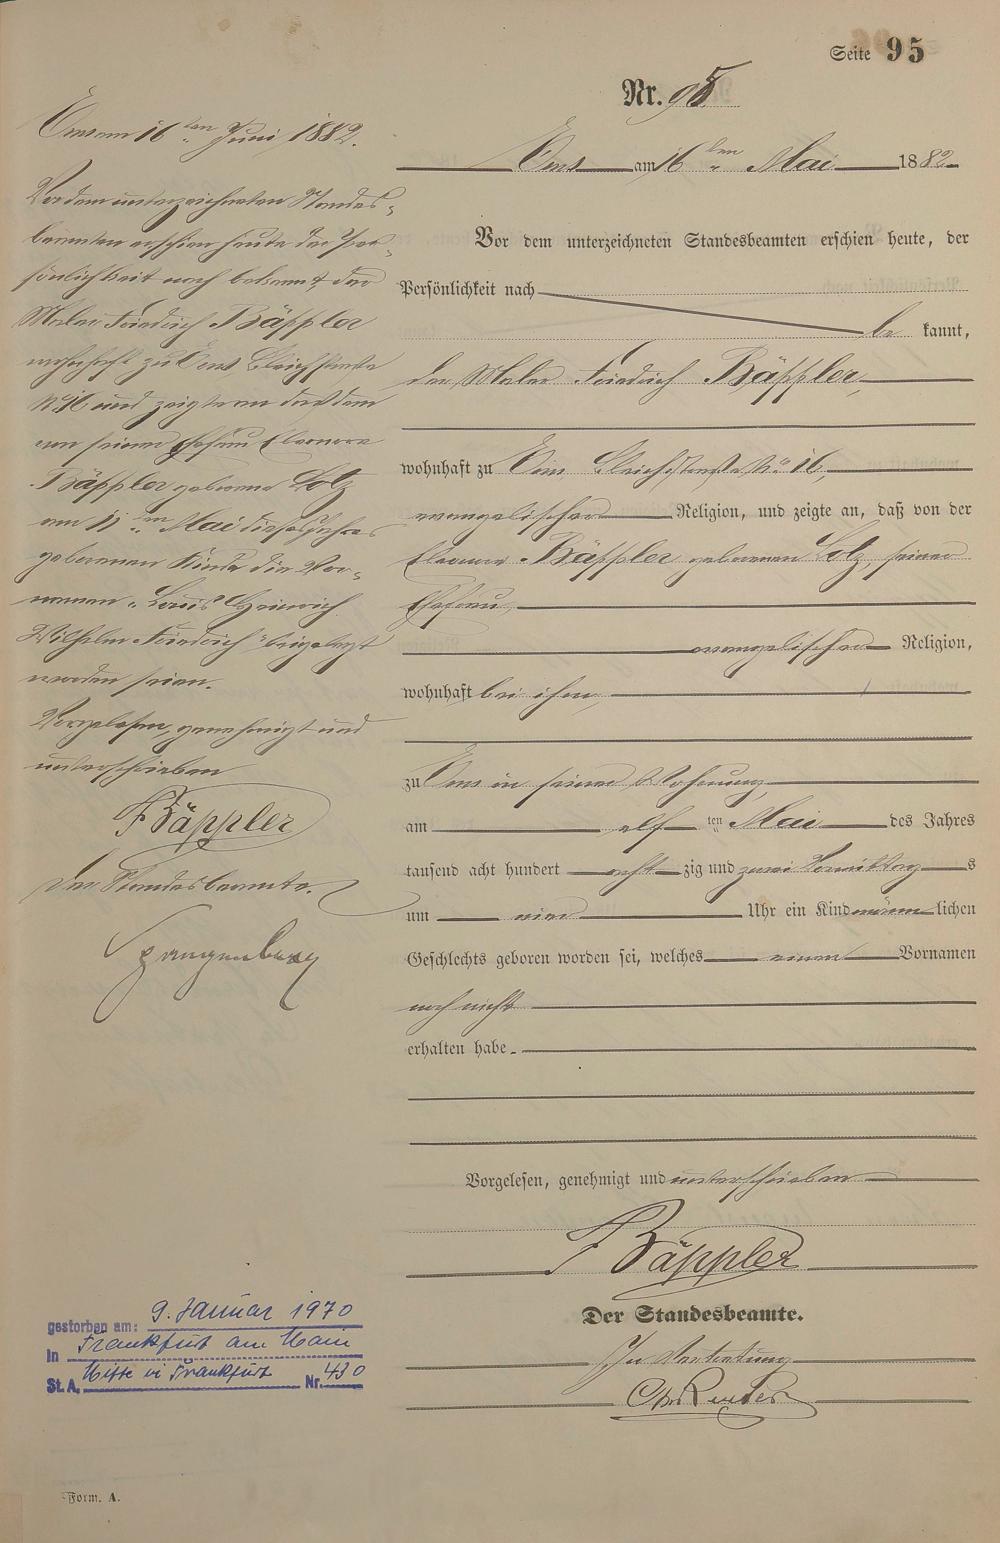 Seite 95
Nr. 95
Ems am 16ten Mai 1882
Vor dem unterzeichneten Standesbeamten erschien heute, der
Persönlichkeit nach
be kannt,
der Maler Friedrich Bäppler,
wohnhaft zu Ems, Bleichstraße No 16,
evangelischer Religion, und zeigte an, daß von der
Eleonore Bäppler geborenen Lotz seiner
Ehefrau,
evangelischer Religion,
wohnhaft bei ihm,
zu Ems in seiner Wohnung,
am elf ten Mai des Jahres
tausend acht hundert acht zig und zwei Vormittag s
um vier Uhr ein Kind männ lichen
Geschlechts geboren worden sei, welches einen Vornamen
noch nicht
erhalten habe.
Vorgelesen, genehmigt und unterschrieben
F Bäppler
Der Standesbeamte.
In Vertretung
Reuter
Ems am 16ten Juni 1882.
Vor dem unterzeichneten Standes-
beamten erschien heute der Per-
sönlichkeit nach bekannt, der
Maler Friedrich Bäppler
wohnhaft zu Ems Bleichstraße
No 16 und zeigte an daß dem
von seiner Ehefrau Eleonore
Bäppler geborene Lotz
am 11ten Mai dieses Jahres
geborenen Kinde die Vor-
namen "Louis Heinrich
Wilhelm Friedrich" beigelegt
worden seien.
Vorgelesen, genehmigt und
unterschrieben
F Bäppler
Der Standesbeamte.
Spangenberg
gestorben am: 9. Januar 1970
in Frankfurt am Main
St. A. Mitte in Frankfurt Nr. 430
Form. A.